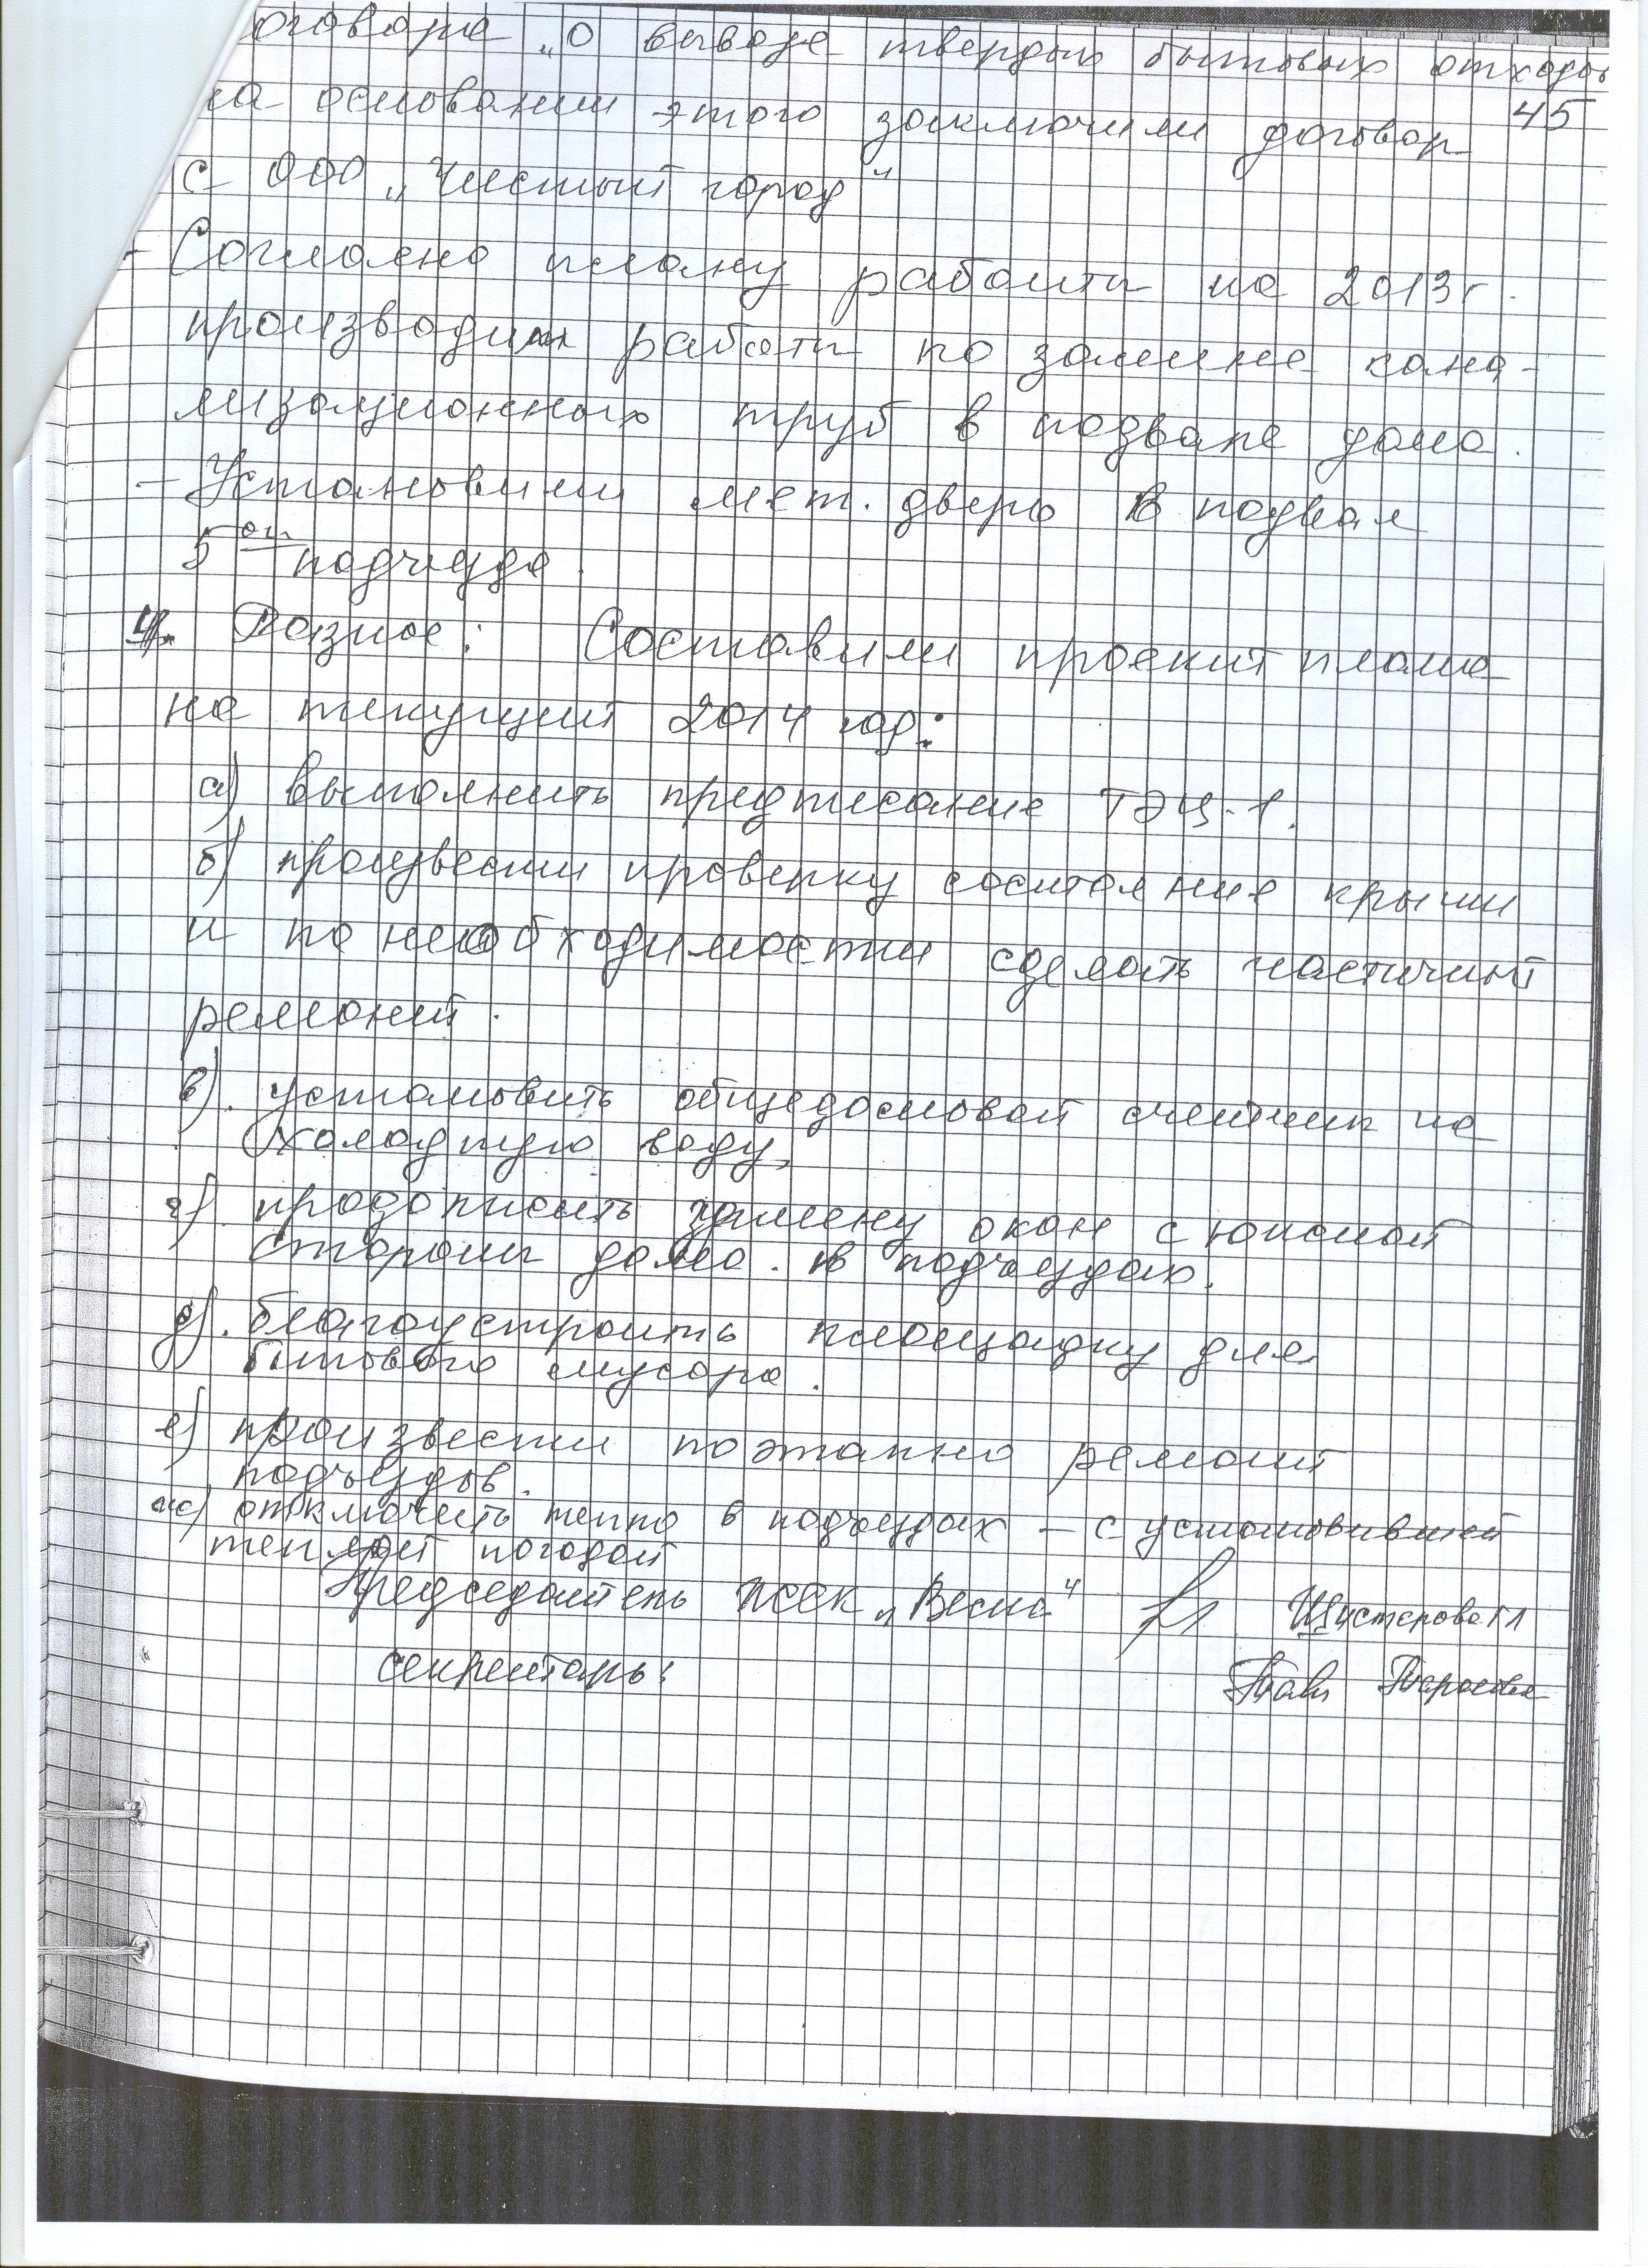 оговора „О вывозе твердых бытовых отходов
45
на основании этого заключили договор
с ООО „Чистый город"
- Согласно плану работы на 2013г.
производим работы по замене кана-
лизационных труб в подвале дома.
- Установили мет. дверь в подвал
5ого подъезда.
4. Разное: Составили проект плана
на текущий 2014 год:
а) выполнить предписание ТЭЦ-1.
б) произвести проверку состояние крыши
и по необходимости сделать частичный
ремонт.
в). установить общедомовой счетчик на
холодную воду,
г). продолжить замену окон с южной
стороны дома. в подъездах.
д). благоустроить площадку для
бытового мусора.
е) произвести поэтапно ремонт
подъездов.
ж) отключить тепло в подъездах – с установившей
теплой погодой
Председатель ЖСК „Весна"
секретарь: